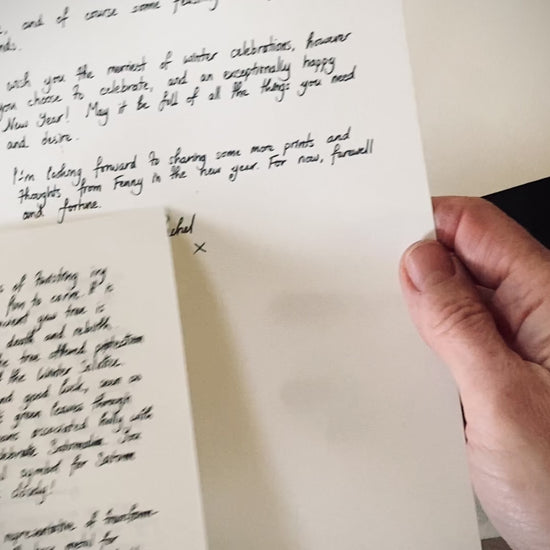 , and of course some feasting
nds.
wish you the merriest of winter celebrations, however
you choose to celebrate, and an exceptionally happy
New Year! May it be full of all the things you need
and desire.
I'm looking forward to sharing some more prints and
thoughts from Fenny in the new year. For now, farewell
and fortune.
chel
x
s of twisting ivy
fun to carve. It is
ancient yew tree is
death and rebirth.
tree offered protection
the Winter Solstice.
and good luck, seen as
green leaves through
associated holly with
celebrate Saturnalia. You
symbol for Saturn
closely!
representative of transform-
metal for